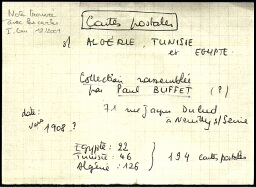 Note trouvée
avec les cartes
I. Lin 12/2001
Cartes postales
s/ ALGÉRIE, TUNISIE
et EGYPTE.
Collection rassemblée
par Paul BUFFET (?)
71 rue Jacques Dulud
à Neuilly s/Seine
date:
vers 1908 ?
Egypte: 22
Tunisie: 46
Algérie: 126
194 cartes postales